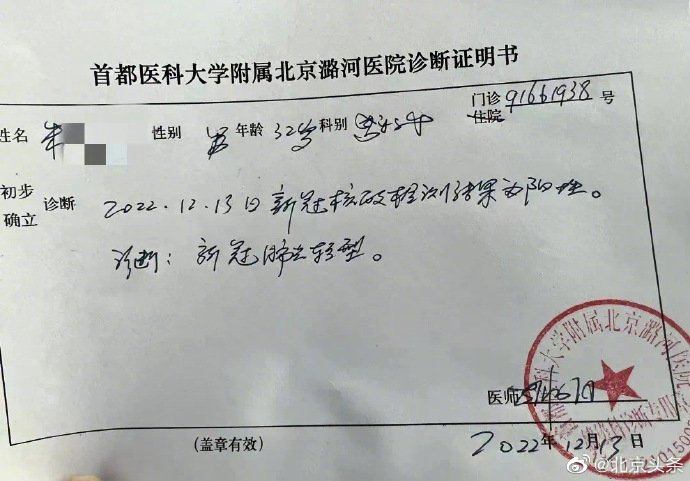 首都医科大学附属北京潞河医院诊断证明书
姓名 朱 性别 男 年龄 32岁 科别 门诊 住院 91661938 号
初步 确立 诊断 2022.12.13日新冠核酸检测结果为阳性。
诊断：新冠肺炎轻型。
医师
(盖章有效) 2022年12月13日
首都医科大学附属北京潞河医院
@北京头条